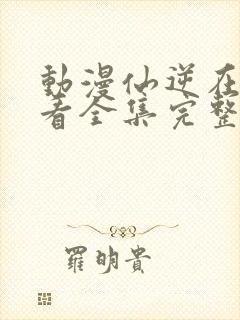 動漫仙逆在
看全集完整
羅明貴